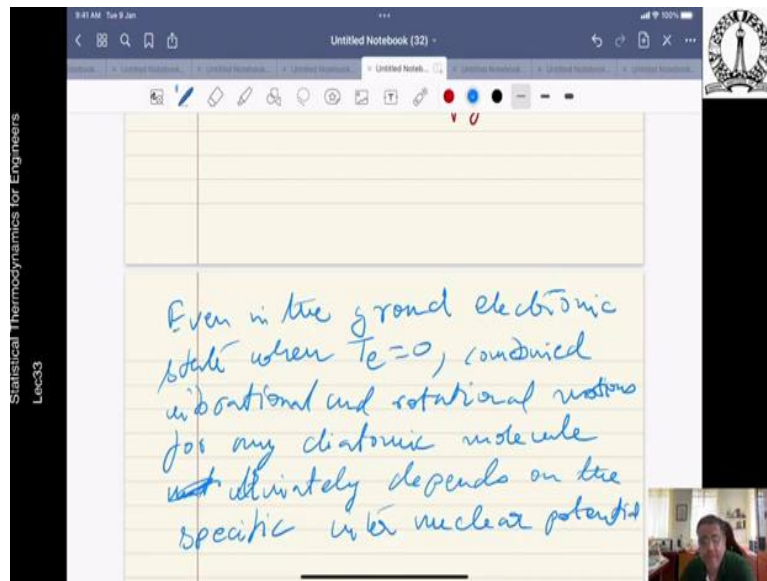 9:41 AM Tue 9 Jan
100%
Untitled Notebook (32)
Untitled Noteb...
Statistical Thermodynamics for Engineers
Lec33
Even in the grond electronic
state when Te=0, combined
vibrational and rotational motions
for any diatomic molecule
ultimately depends on the
specific inter nuclear potential